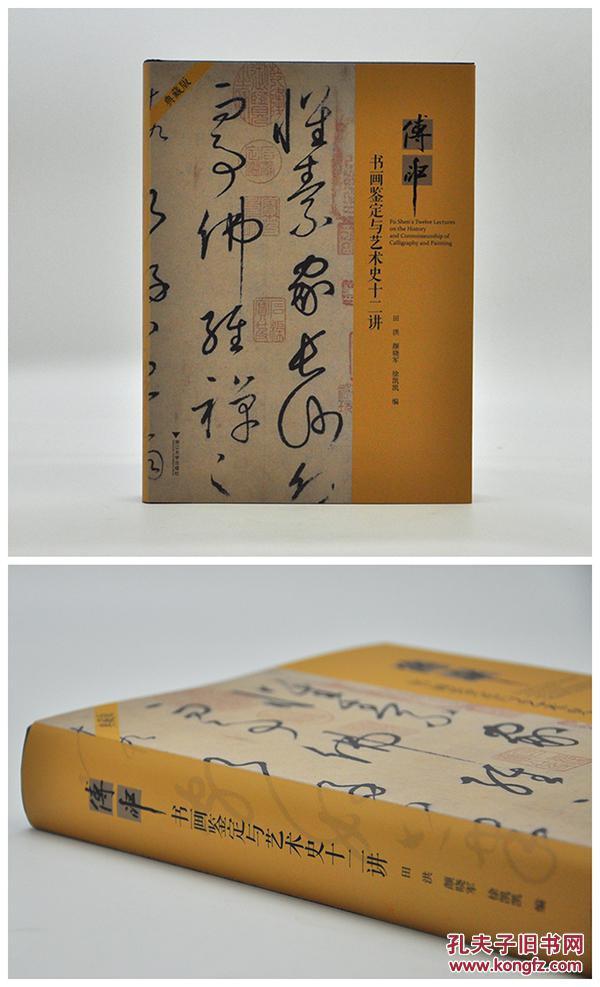 典藏版
懷素家長沙幼
而事佛經禪之
傅申
书画鉴定与艺术史十二讲
Fu Shen's Twelve Lectures
on the History
and Connoisseurship of
Calligraphy and Painting
田 洪 颜晓军 徐凯凯 编
浙江大学出版社
傅申
书画鉴定与艺术史十二讲
田 洪 颜晓军 徐凯凯 编
孔夫子旧书网
www.kongfz.com